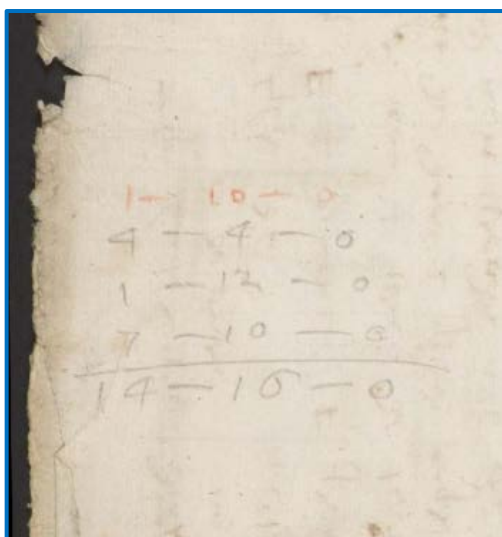 1 — 10 — 0
4 — 4 — 0
1 — 12 — 0
7 — 10 — 0
14 — 16 — 0